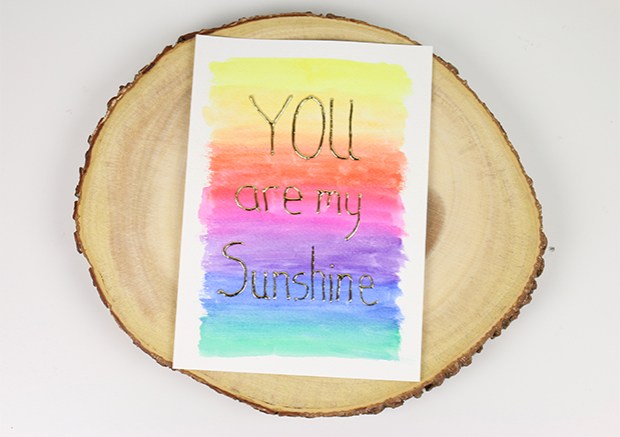 YOU
are my
Sunshine